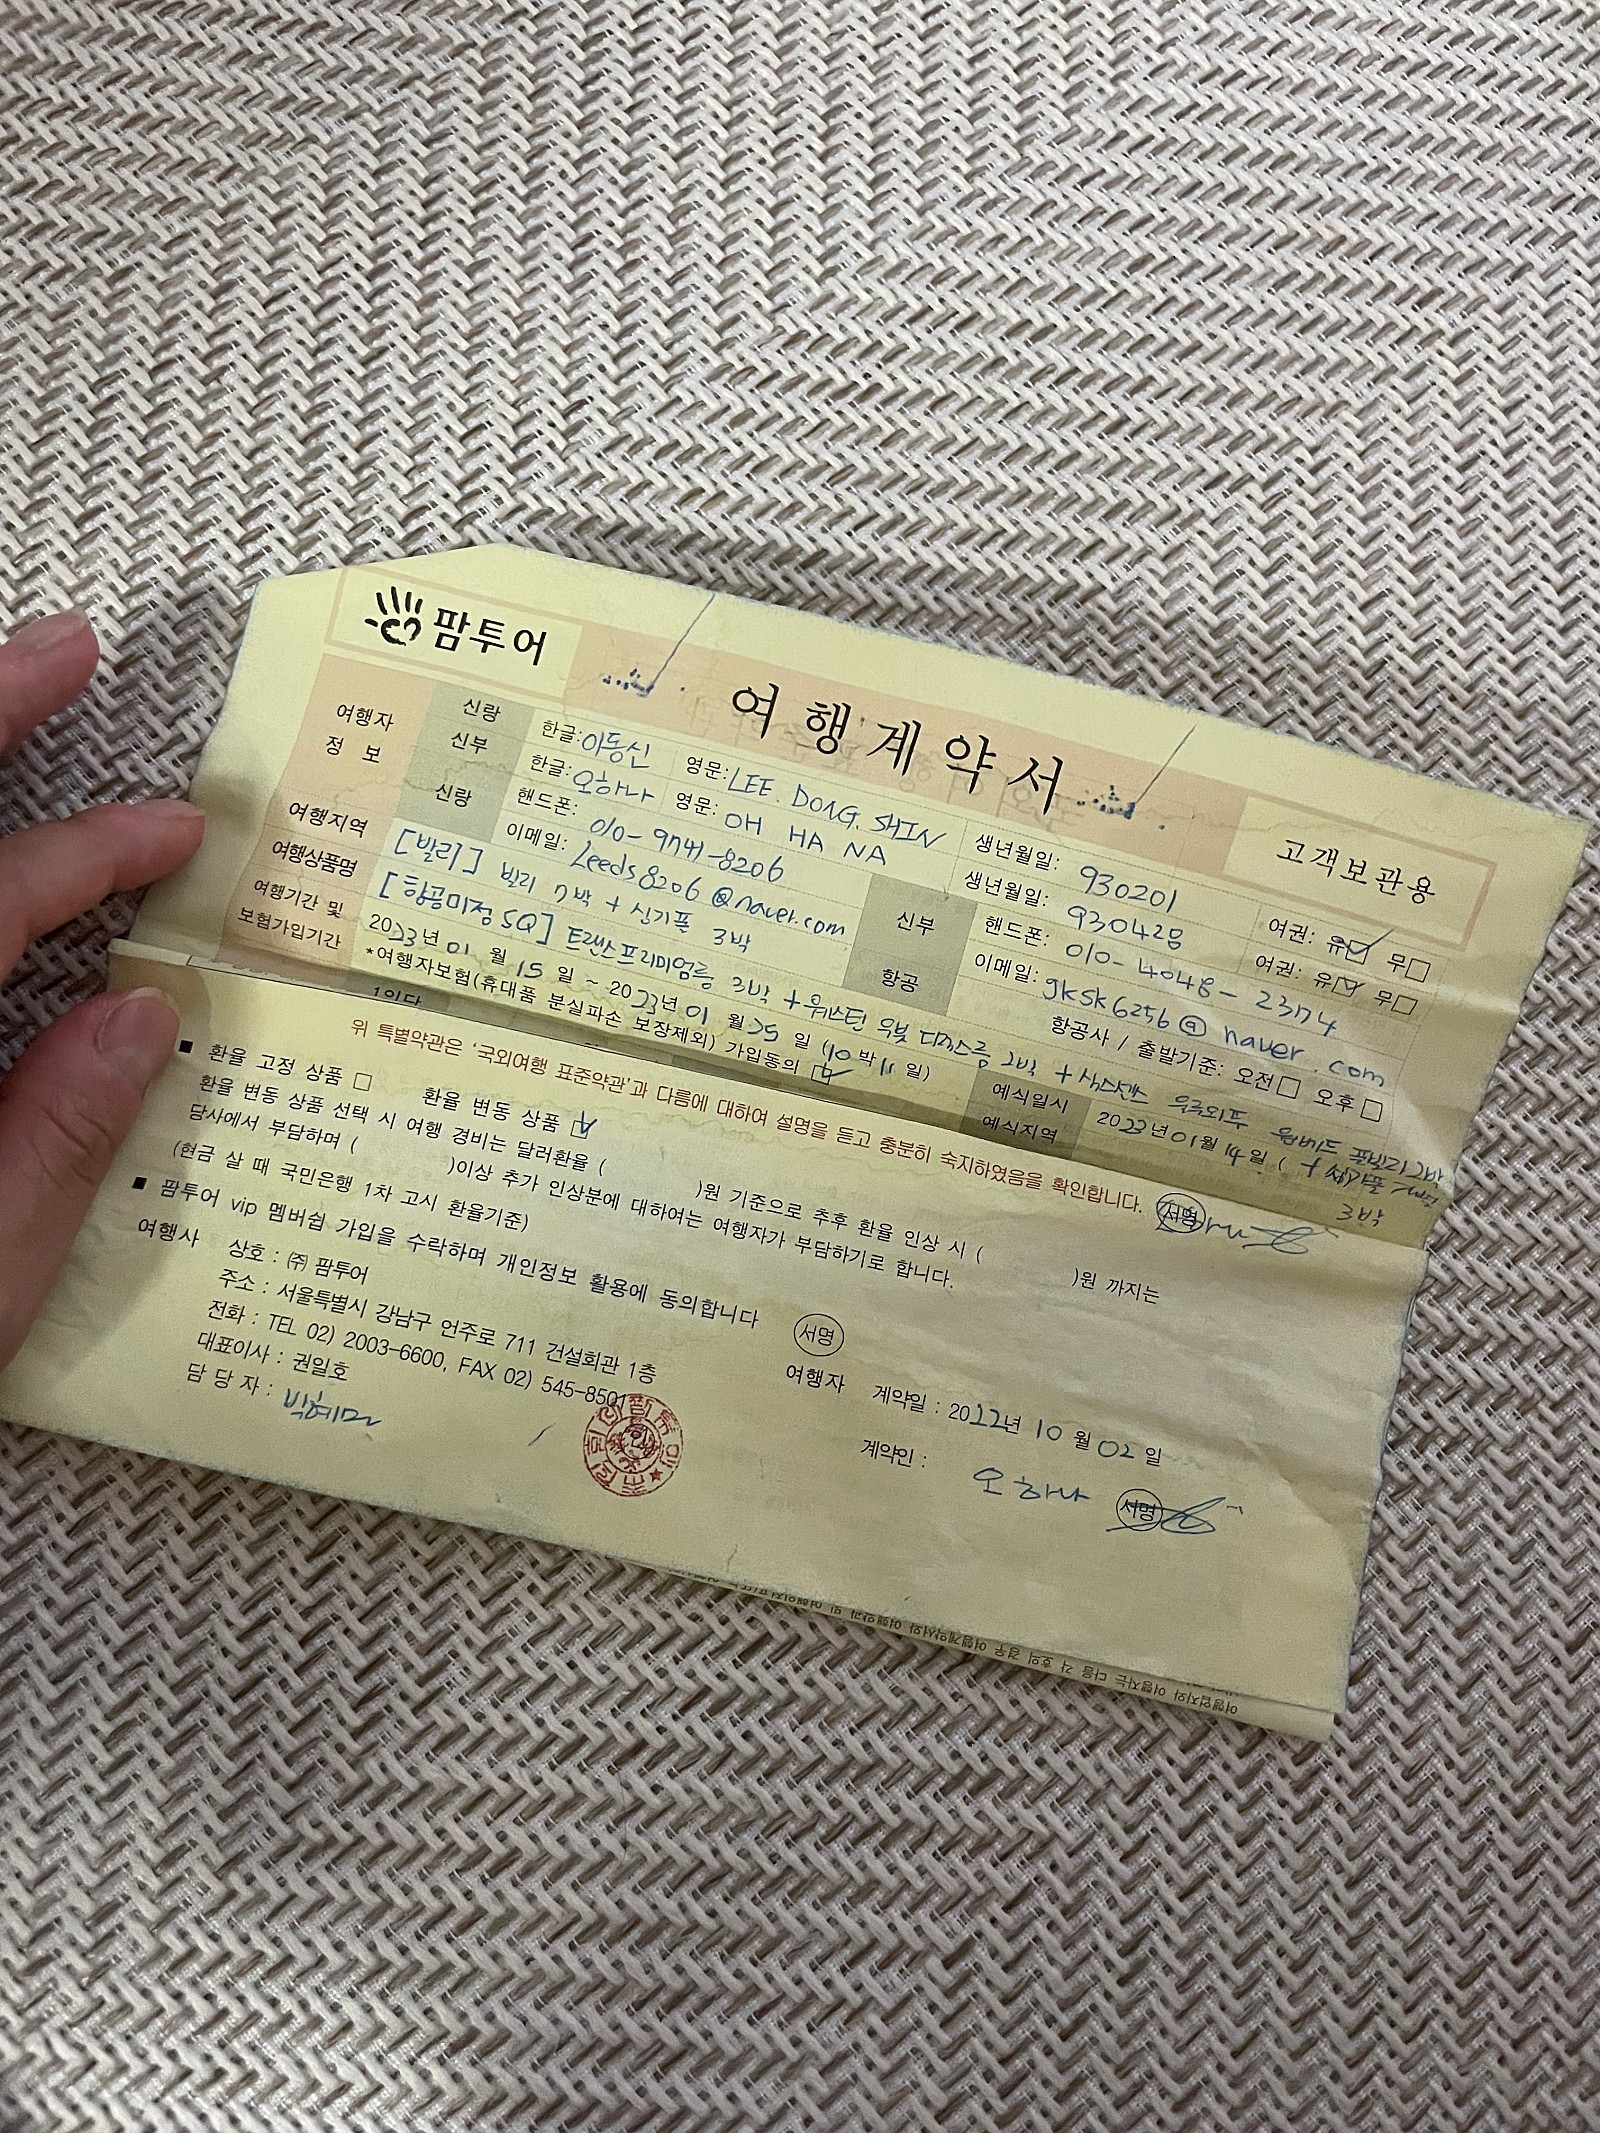 팜투어
여행계약서
고객보관용
여행자 정 보
신랑 한글: 이동신 영문: LEE. DONG. SHIN 생년월일: 930201 여권: 유☑ 무□
신부 한글: 오하나 영문: OH HA NA 생년월일: 930428 여권: 유☑ 무□
신랑 핸드폰: 010-9741-8206 신부 핸드폰: 010-4048-2374
이메일: Leeds8206@naver.com 이메일: gksk6256@naver.com
여행지역 [발리] 발리 7박 + 싱가폴 3박 항공 항공사 / 출발기준: 오전□ 오후□
여행상품명 [항공미정 SQ] 트랜스프리미엄룸 3박 + 웨스틴 우붓 디럭스룸 2박 + 식스센스 울루와뚜 원베드 풀빌라 2박
+ 싱가폴 3박
여행기간 및 보험가입기간 2023년 01월 15일 ~ 2023년 01월 25일 (10박 11일) 예식일시 2023년 01월 14일 (
*여행자보험(휴대품 분실파손 보장제외) 가입동의 ☑ 예식지역
1인당
위 특별약관은 '국외여행 표준약관'과 다름에 대하여 설명을 듣고 충분히 숙지하였음을 확인합니다. 서명
■ 환율 고정 상품 □ 환율 변동 상품 ☑
환율 변동 상품 선택 시 여행 경비는 달러환율 ( )원 기준으로 추후 환율 인상 시 ( )원 까지는
당사에서 부담하며 ( )이상 추가 인상분에 대하여는 여행자가 부담하기로 합니다.
(현금 살 때 국민은행 1차 고시 환율기준)
■ 팜투어 vip 멤버쉽 가입을 수락하며 개인정보 활용에 동의합니다 서명
여행사 상호 : ㈜ 팜투어
주소 : 서울특별시 강남구 언주로 711 건설회관 1층
전화 : TEL 02) 2003-6600, FAX 02) 545-8501
대표이사 : 권일호
담 당 자 : 박혜미
여행자 계약일 : 2022년 10월 02일
계약인 : 오하나 서명